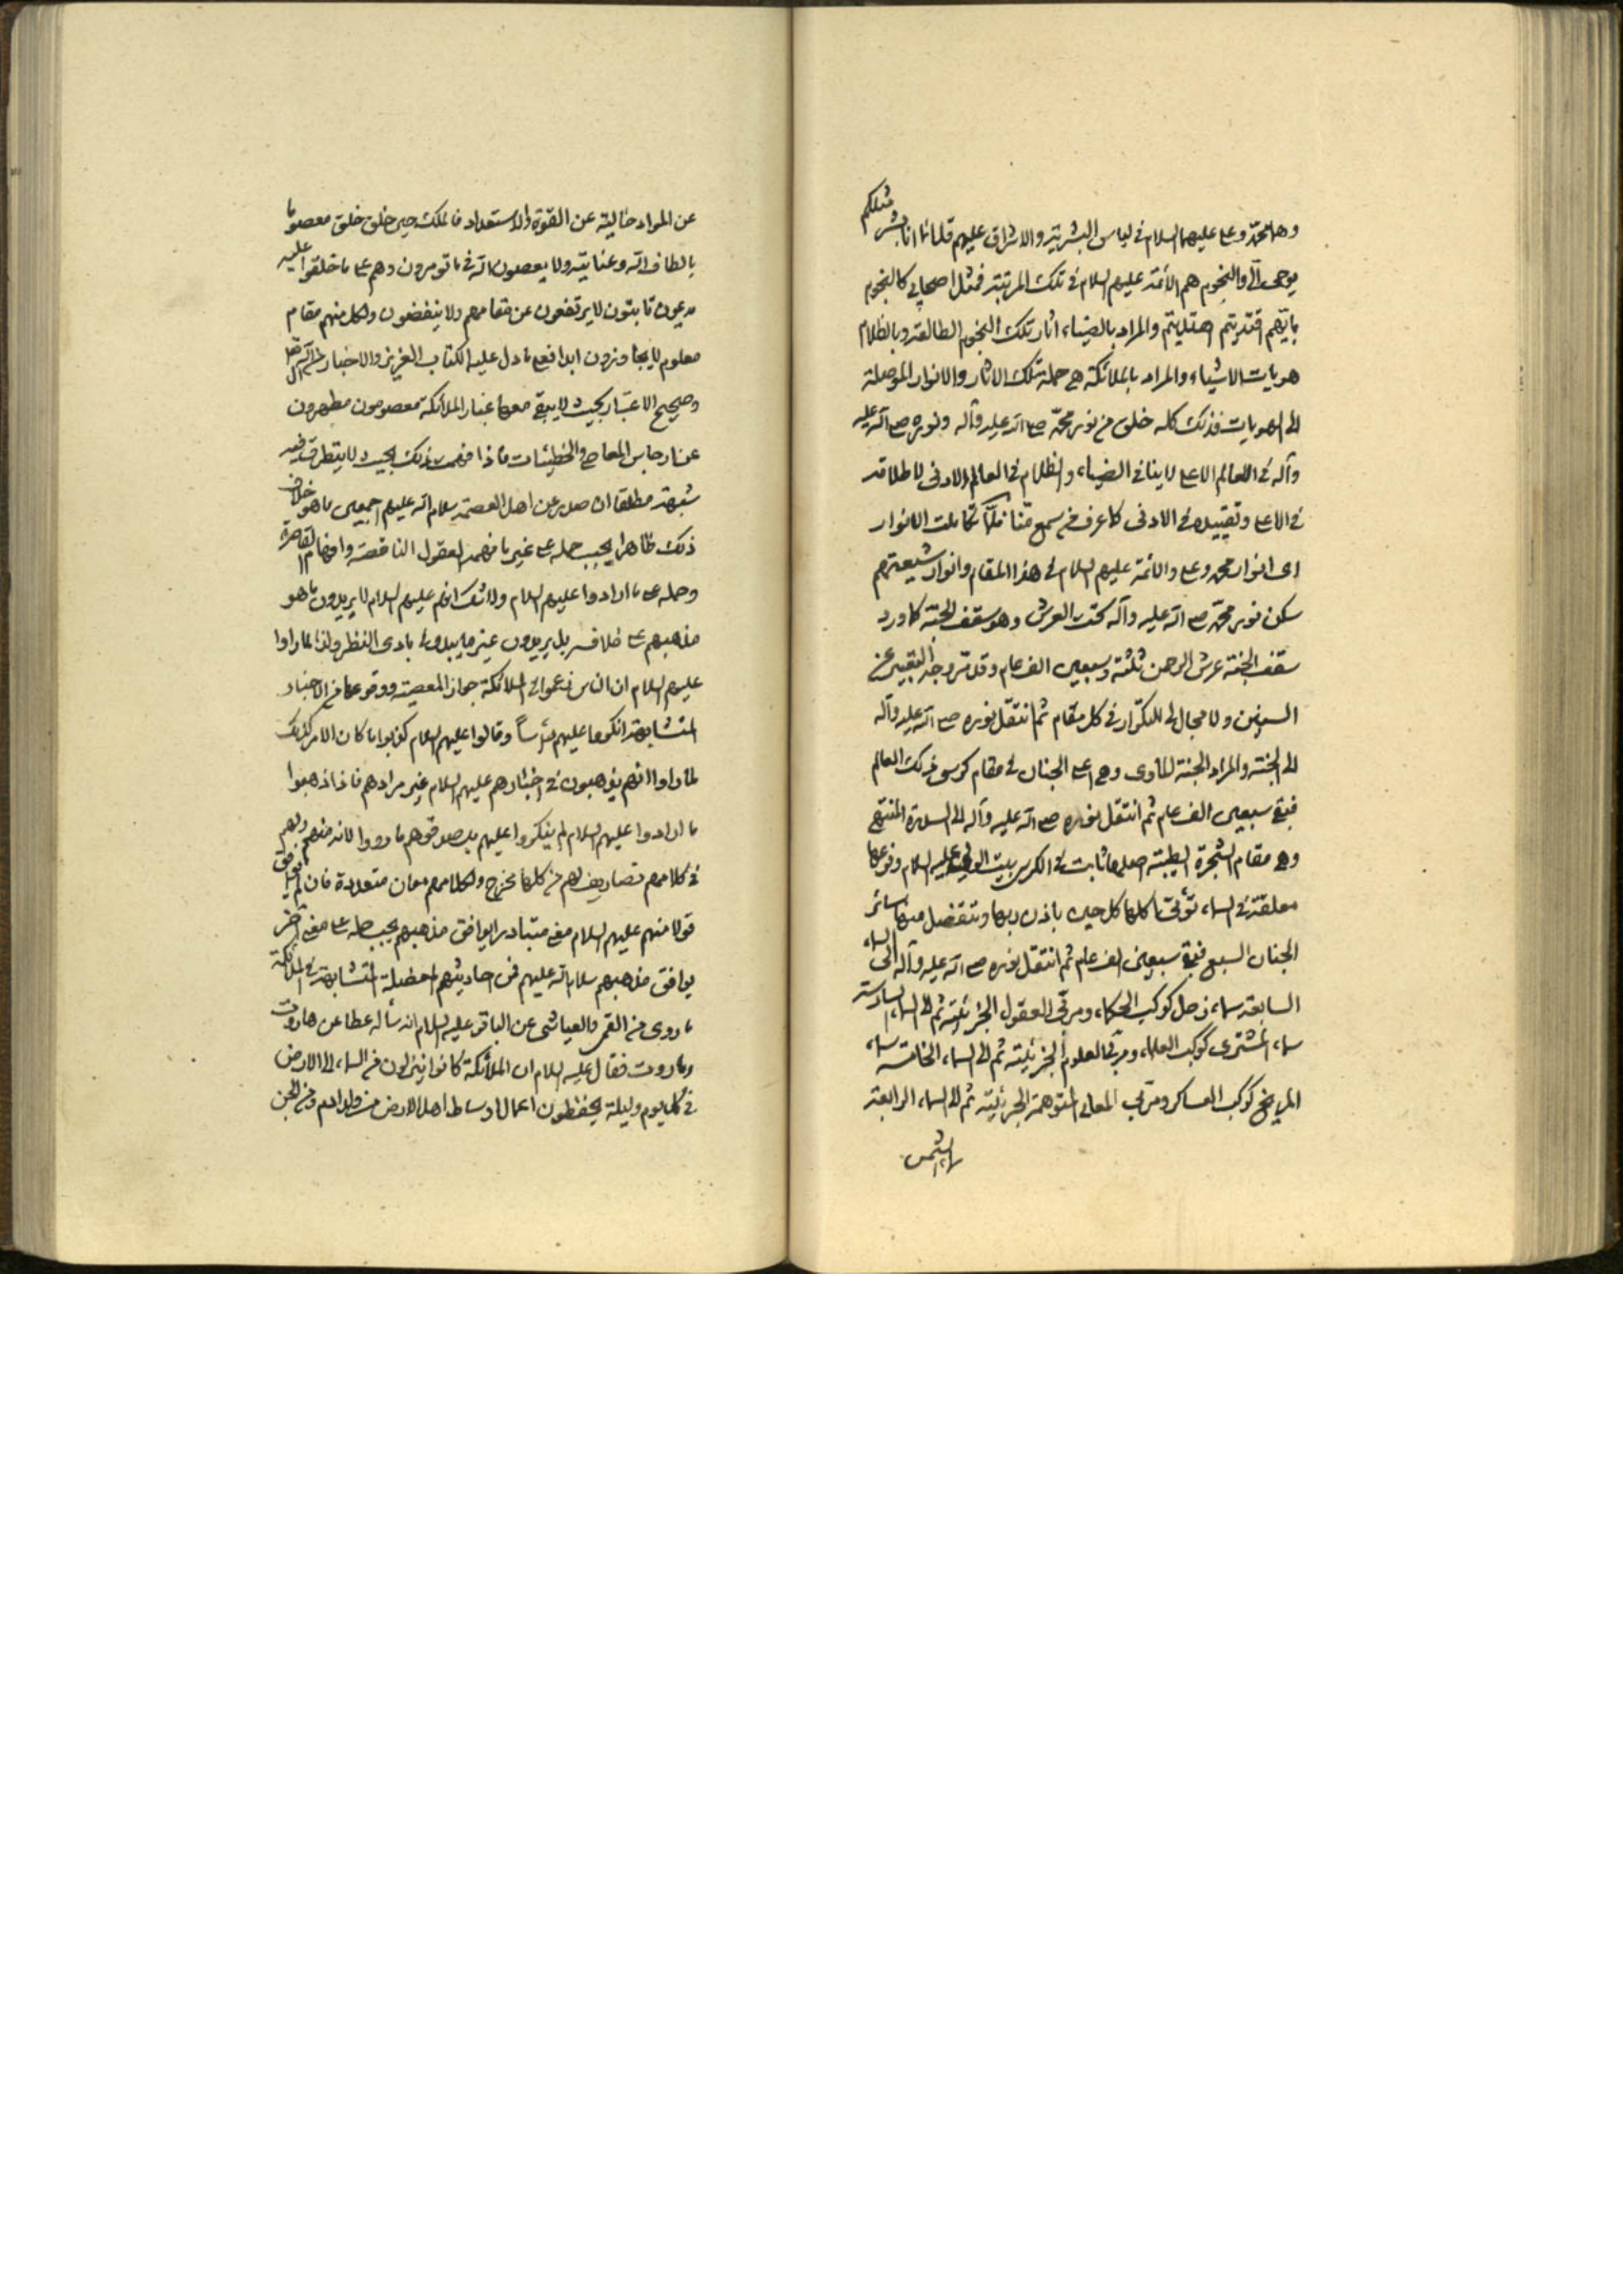 وهما محمد وعلي عليهما السلام في لباس البشرية والاشراق عليهم قل انما انا بشر مثلكم
يوحى الي والنجوم هم الائمة عليهم السلام في تلك المرتبة فمثل اصحابي كالنجوم
بايهم اقتديتم اهتديتم والمراد بالضياء اثار تلك النجوم الطالعة وبالظلام
هويات الاشياء والمراد بالملائكة هي حملة تلك الاثار والانوار الموصلة
الى الهويات فذلك كله خلق من نور محمد صلى الله عليه وآله ونوره صلى الله عليه
وآله في العالم الاعلى لا ينافي الضياء والظلام في العالم الادنى لاطلاقه
في الاعلى وتقييده في الادنى كما عرف من سمع منا فلما تكاملت الانوار
اى انوار محمد وعلي والائمة عليهم السلام في هذا المقام وانوار شيعتهم
سكن نور محمد صلى الله عليه وآله تحت العرش وهو سقف الجنة كما ورد
سقف الجنة عرش الرحمن ثلثة وسبعين الف عام وقد مر وجه التعبير عن
السنين ولا مجال لي للتكرار في كل مقام ثم انتقل نوره صلى الله عليه وآله
الى الجنة والمراد الجنة المأوى وهي اعلى الجنان في مقام كرسي ذلك العالم
فبقي سبعين الف عام ثم انتقل نوره صلى الله عليه وآله الى السدرة المنتهى
وهي مقام الشجرة الطيبة اصلها ثابت في الكرسي بيت الولي عليه السلام وفرعها
معلقة في السماء تؤتي اكلها كل حين باذن ربها وتنفصل منها سائر
الجنان السبع فبقي سبعين الف عام ثم انتقل نوره صلى الله عليه وآله الى السماء
السابعة سماء زحل كوكب الحكماء ومربي العقول الجزئية ثم الى السماء السادسة
سماء المشترى كوكب العلماء ومربي العلوم الجزئية ثم الى السماء الخامسة سماء
المريخ كوكب العساكر ومربي المعاني المتوهمة الجزئية ثم الى السماء الرابعة
الشمس
عن المواد خالية عن القوة والاستعداد فالملك حين خلق خلق معصوما
بالطاف الله وعنايته ولا يعصون الله في ما يؤمرون وهم على ما خلقوا عليه
ثابتون لا يرتفعون عن مقامهم ولا ينخفضون ولكل منهم مقام
معلوم لا يتجاوزون ابدا فعلى ما دل عليه الكتاب العزيز والاخبار
وصحيح الاعتبار بحيث لا يبقى معها غبار الملائكة معصومون مطهرون
عن ارجاس المعاصي والخطيئات فاذا فهمت ذلك بحيث لا يتطرق فيه
شبهة مطلقا ان صدر عن اهل العصمة سلام الله عليهم اجمعين ما هو خلاف
ذلك ظاهرا يجب حمله على غير ما فهمه العقول الناقصة وافهام القاصرة
وحمله على ما ارادوا عليهم السلام ولا شك انهم عليهم السلام لا يريدون ما هو
مذهبهم على خلافه بل يريدون غير ما يبدو في بادى النظر ولذا لما راوا
عليهم السلام ان الناس زعموا في الملائكة جواز المعصية ووقوعها من الاخبار
المتشابهة انكروها عليهم رأسا وقالوا عليهم السلام كذبوا ما كان الامر كذلك
لما راوا انهم يذهبون في اخبارهم عليهم السلام غير مرادهم فاذا ذهبوا
ما ارادوا عليهم السلام لم ينكروا عليهم بل صدقوهم ما رووا لانه منهم ولهم
في كلامهم تصاريف لهم من كلها مخرج ولكلامهم معان متعددة فان لم يوافق
قولا منهم عليهم السلام معنى متبادر ايوافق مذهبهم يجب حمله على معنى آخر
يوافق مذهبهم سلام الله عليهم فمن احاديثهم المعضلة المتشابهة في الملائكة
ما روى من القمي والعياشي عن الباقر عليه السلام انه سأله عطا عن هاروت
وماروت فقال عليه السلام ان الملائكة كانوا ينزلون من السماء الى الارض
في كل يوم وليلة يحفظون اعمال اوساط اهل الارض من ولد ادم ومن الجن